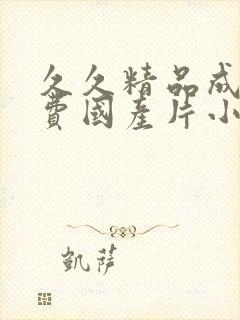 久久精品成
費國產片小
凱薩